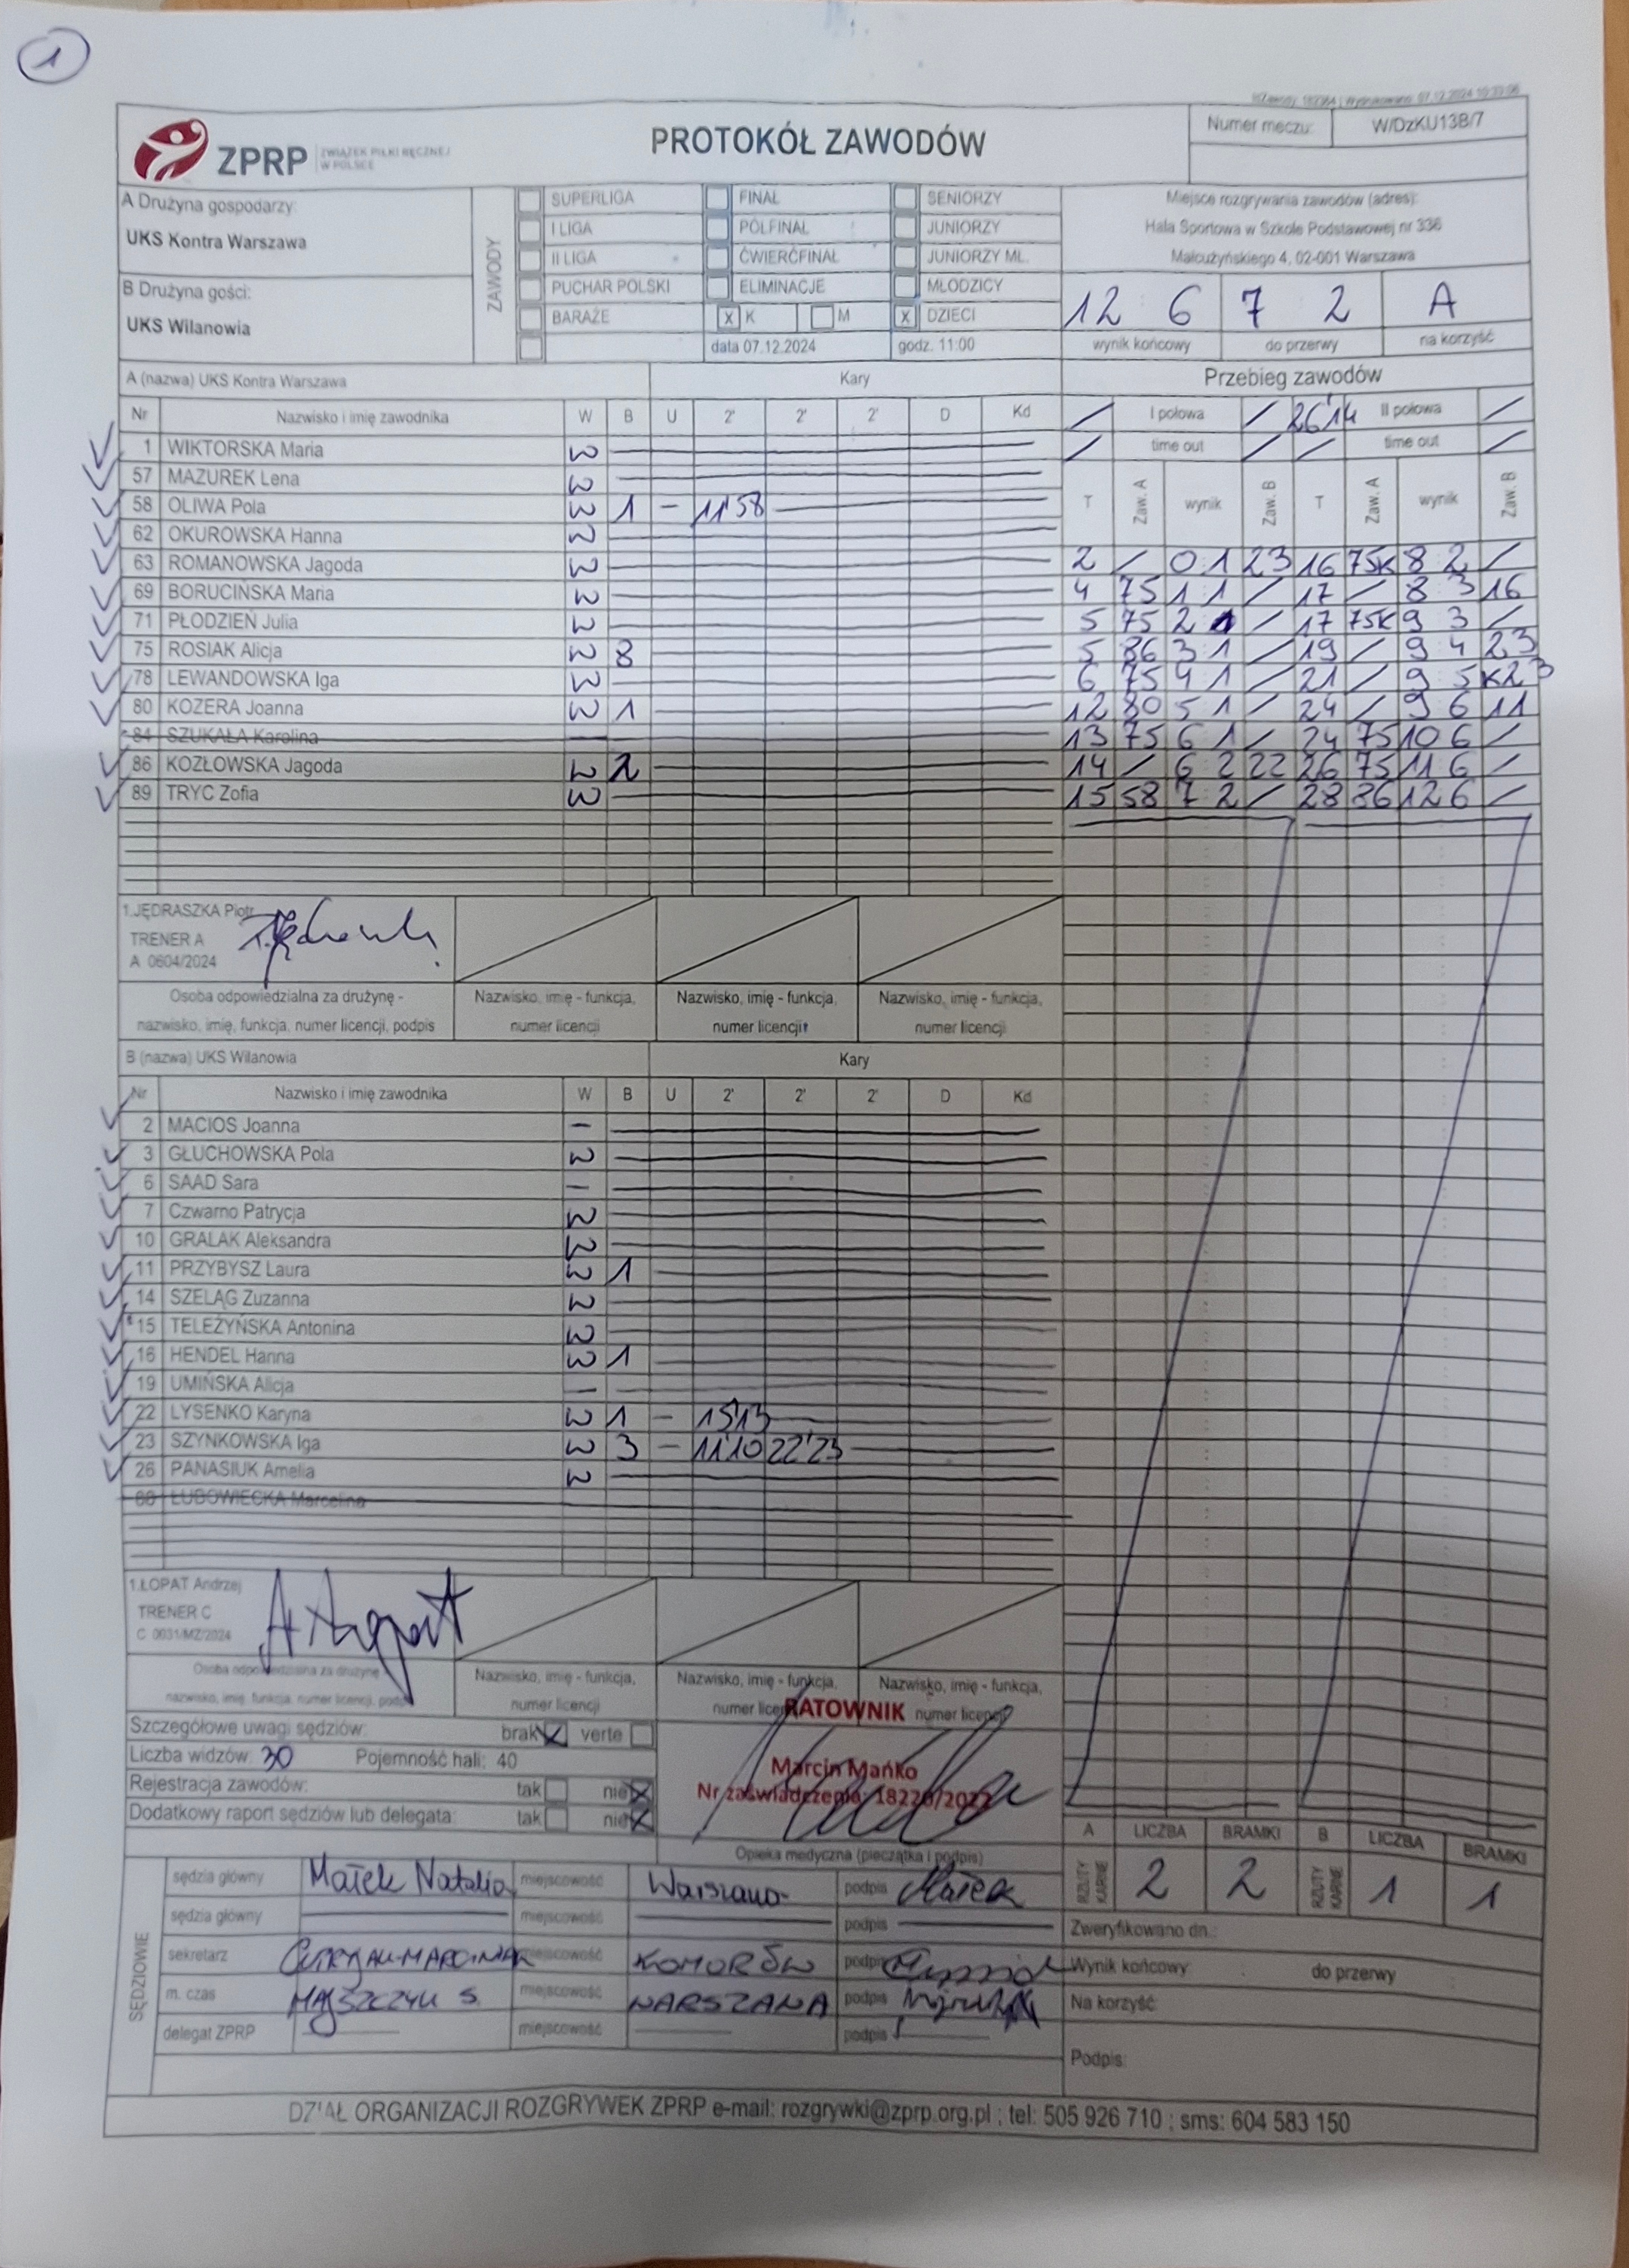 1
PROTOKÓŁ ZAWODÓW
ZPRP ZWIĄZEK PIŁKI RĘCZNEJ W POLSCE
Numer meczu: W/DzKU13B/7
A Drużyna gospodarzy:
UKS Kontra Warszawa
B Drużyna gości:
UKS Wilanowia
ZAWODY
SUPERLIGA FINAŁ SENIORZY
I LIGA PÓŁFINAŁ JUNIORZY
II LIGA ĆWIERĆFINAŁ JUNIORZY MŁ.
PUCHAR POLSKI ELIMINACJE MŁODZICY
BARAŻE X K M X DZIECI
data 07.12.2024 godz. 11:00
Miejsce rozgrywania zawodów (adres):
Hala Sportowa w Szkole Podstawowej nr 336
Małcużyńskiego 4, 02-001 Warszawa
12 6 7 2 A
wynik końcowy do przerwy na korzyść
A (nazwa) UKS Kontra Warszawa Kary Przebieg zawodów
Nr Nazwisko i imię zawodnika W B U 2' 2' 2' D Kd
/ I połowa / 26'14 II połowa /
/ time out / / time out /
T Zaw. A wynik Zaw. B T Zaw. A wynik Zaw. B
1 WIKTORSKA Maria W
57 MAZUREK Lena W
58 OLIWA Pola W 1 - 11'58
62 OKUROWSKA Hanna W
63 ROMANOWSKA Jagoda W
69 BORUCIŃSKA Maria W
71 PŁODZIEŃ Julia W
75 ROSIAK Alicja W 8
78 LEWANDOWSKA Iga W
80 KOZERA Joanna W 1
84 SZUKAŁA Karolina -
86 KOZŁOWSKA Jagoda W 2
89 TRYC Zofia W
2 / 0 1 23 16 75K 8 2 /
4 75 1 1 / 17 / 8 3 16
5 75 2 1 / 17 75K 9 3 /
5 86 3 1 / 19 / 9 4 23
6 75 4 1 / 21 / 9 5 K23
12 80 5 1 / 24 / 9 6 11
13 75 6 1 / 24 75 10 6 /
14 / 6 2 22 26 75 11 6 /
15 58 7 2 / 28 86 12 6 /
1.JĘDRASZKA Piotr
TRENER A
A 0604/2024
Osoba odpowiedzialna za drużynę - nazwisko, imię, funkcja, numer licencji, podpis
Nazwisko, imię - funkcja, numer licencji
Nazwisko, imię - funkcja, numer licencji
Nazwisko, imię - funkcja, numer licencji
B (nazwa) UKS Wilanowia Kary
Nr Nazwisko i imię zawodnika W B U 2' 2' 2' D Kd
2 MACIOS Joanna -
3 GŁUCHOWSKA Pola W
6 SAAD Sara -
7 Czwarno Patrycja W
10 GRALAK Aleksandra W
11 PRZYBYSZ Laura W 1
14 SZELĄG Zuzanna W
15 TELEŻYŃSKA Antonina W
16 HENDEL Hanna W 1
19 UMIŃSKA Alicja -
22 LYSENKO Karyna W 1 - 15'13
23 SZYNKOWSKA Iga W 3 - 11'10 22'23
26 PANASIUK Amelia W
ŁUBOWIECKA Marcelina
1.ŁOPAT Andrzej
TRENER C
C 0031/MZ/2024
Osoba odpowiedzialna za drużynę
nazwisko, imię, funkcja, numer licencji, podpis
Nazwisko, imię - funkcja, numer licencji
Nazwisko, imię - funkcja, numer licencji
Nazwisko, imię - funkcja, numer licencji
Szczegółowe uwagi sędziów: brak X verte
Liczba widzów: 30 Pojemność hali: 40
Rejestracja zawodów: tak nie X
Dodatkowy raport sędziów lub delegata: tak nie X
RATOWNIK
Marcin Mańko
Nr zaświadczenia
Opieka medyczna (pieczątka i podpis)
A LICZBA BRAMKI B LICZBA BRAMKI
RZUTY KARNE 2 2 RZUTY KARNE 1 1
SĘDZIOWIE
sędzia główny Małek Natalia miejscowość Warszawa podpis Małek
sędzia główny miejscowość podpis
sekretarz miejscowość KOMORÓW podpis
m. czas MAJSZCZYK S. miejscowość WARSZAWA podpis
delegat ZPRP miejscowość podpis
Zweryfikowano dn.:
Wynik końcowy: do przerwy
Na korzyść:
Podpis:
DZIAŁ ORGANIZACJI ROZGRYWEK ZPRP e-mail: rozgrywki@zprp.org.pl ; tel: 505 926 710 ; sms: 604 583 150